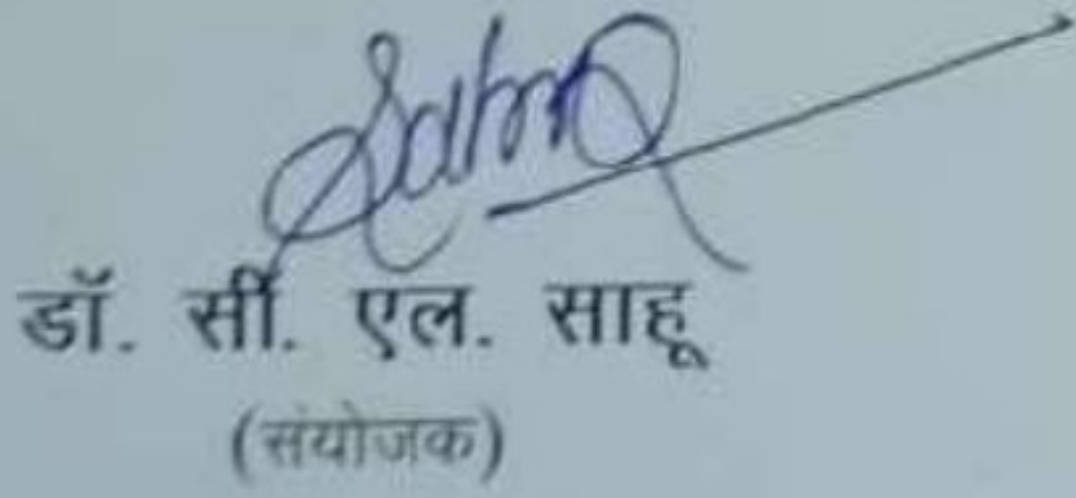 Sahu
डॉ. सी. एल. साहू
(संयोजक)